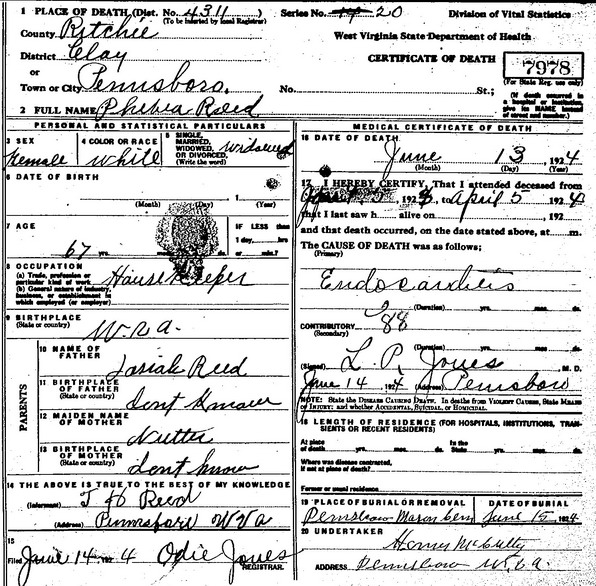 1 PLACE OF DEATH, (Dist. No. 4311 Series No. 20 Division of Vital Statistics
(To be inserted by local Registrar)
County Ritchie West Virginia State Department of Health
District Clay CERTIFICATE OF DEATH 7978
or (For State Reg. use only)
Town or City Pennsboro. No. St.; (If death occurred in a hospital or institution, give its NAME instead of street and number.)
2 FULL NAME Phebia Reed
PERSONAL AND STATISTICAL PARTICULARS
3 SEX Female
4 COLOR OR RACE White
5 SINGLE, MARRIED, WIDOWED, OR DIVORCED, (Write the word) widowed
6 DATE OF BIRTH
(Month) (Day) (Year)
7 AGE 67 yrs. ds. IF LESS than 1 day, hrs or min.?
8 OCCUPATION
(a) Trade, profession or particular kind of work House Keeper
(b) General nature of industry, business, or establishment in which employed (or employer)
9 BIRTHPLACE
(State or country) W. Va.
PARENTS
10 NAME OF FATHER Josiah Reed
11 BIRTHPLACE OF FATHER
(State or country) Dont Know
12 MAIDEN NAME OF MOTHER Nutter
13 BIRTHPLACE OF MOTHER
(State or country) Dont know
14 THE ABOVE IS TRUE TO THE BEST OF MY KNOWLEDGE
(Informant) Reed
(Address) Pennsboro W Va
15
Filed June 14 1924 Odie Jones
REGISTRAR.
MEDICAL CERTIFICATE OF DEATH
16 DATE OF DEATH
June 13, 1924
(Month) (Day) (Year)
17 I HEREBY CERTIFY, That I attended deceased from
192, to April 5 1924
that I last saw h alive on, 192
and that death occurred, on the date stated above, at m.
The CAUSE OF DEATH was as follows:
(Primary)
Endocarditis
(Duration) yrs. mos. ds.
CONTRIBUTORY 88
(Secondary)
(Duration) yrs. mos. ds.
(Signed) L. P. Jones M. D.
June 14 1924 (Address) Pennsboro
NOTE: State the DISEASE CAUSING DEATH. In deaths from VIOLENT CAUSES, State MEANS OF INJURY: and whether ACCIDENTAL, SUICIDAL, OR HOMICIDAL.
18 LENGTH OF RESIDENCE (FOR HOSPITALS, INSTITUTIONS, TRANSIENTS OR RECENT RESIDENTS)
At place of death yrs. mos. ds. In the State yrs. mos. ds.
Where was disease contracted, if not at place of death?
Former or usual residence
19 PLACE OF BURIAL OR REMOVAL DATE OF BURIAL
Pennsboro Mason Cem June 15 1924
20 UNDERTAKER
Henry
ADDRESS Pennsboro W. Va.